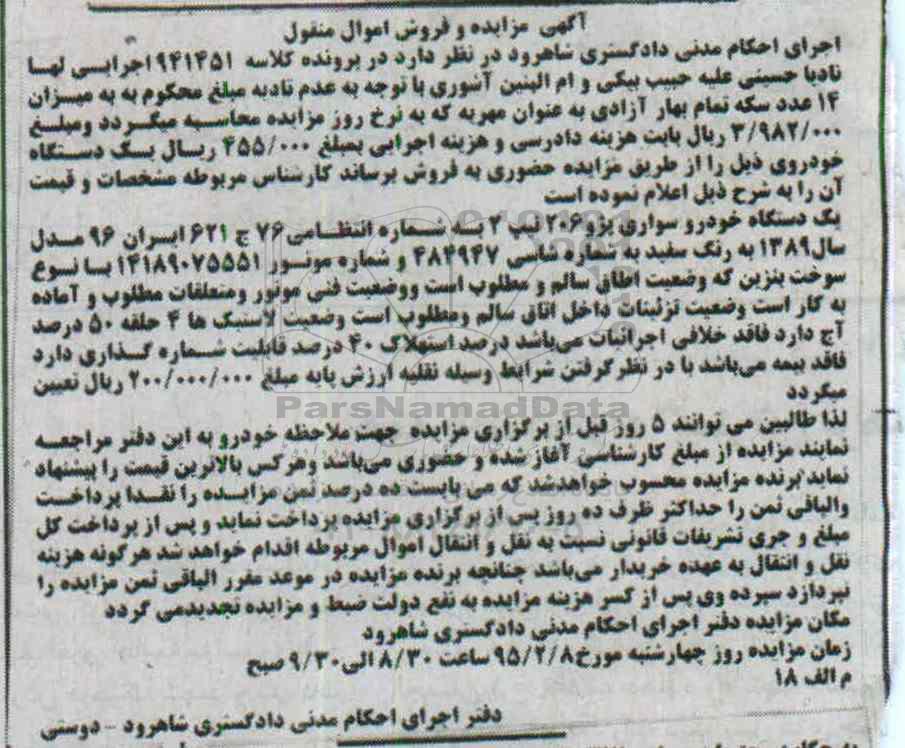 آگهی مزایده و فروش اموال منقول
اجرای احکام مدنی دادگستری شاهرود در نظر دارد در پرونده کلاسه ۹۴۱۴۵۱ اجرایی لها
نادیا حسینی علیه حبیب بیکی و ام البنین آشوری با توجه به عدم تادیه مبلغ محکوم به به میزان
۱۴ عدد سکه تمام بهار آزادی به عنوان مهریه که به نرخ روز مزایده محاسبه میگردد ومبلغ
۳/۹۸۲/۰۰۰ ریال بابت هزینه دادرسی و هزینه اجرایی بمبلغ ۴۵۵/۰۰۰ ریال یک دستگاه
خودروی ذیل را از طریق مزایده حضوری به فروش برساند کارشناس مربوطه مشخصات و قیمت
آن را به شرح ذیل اعلام نموده است
یک دستگاه خودرو سواری پژو ۲۰۶ تیپ ۲ به شماره انتظامی ۷۶ ج ۶۲۱ ایران ۹۶ مدل
سال۱۳۸۹ به رنگ سفید به شماره شاسی ۴۸۴۹۴۷ و شماره موتور ۱۴۱۸۹۰۷۵۵۵۱ با نوع
سوخت بنزین که وضعیت اطاق سالم و مطلوب است ووضعیت فنی موتور ومتعلقات مطلوب و آماده
به کار است وضعیت تزئینات داخل اتاق سالم ومطلوب است وضعیت لاستیک ها ۴ حلقه ۵۰ درصد
آج دارد فاقد خلافی اجرائیات می‌باشد درصد استهلاک ۴۰ درصد قابلیت شماره گذاری دارد
فاقد بیمه می‌باشد با در نظر گرفتن شرایط وسیله نقلیه ارزش پایه مبلغ ۲۰۰/۰۰۰/۰۰۰ ریال تعیین
میگردد
ParsNamadData
لذا طالبین می توانند ۵ روز قبل از برگزاری مزایده جهت ملاحظه خودرو به این دفتر مراجعه
نمایند مزایده از مبلغ کارشناسی آغاز شده و حضوری می‌باشد وهرکس بالاترین قیمت را پیشنهاد
نماید برنده مزایده محسوب خواهدشد که می بایست ده درصد ثمن مزایده را نقدا پرداخت
والباقی ثمن را حداکثر ظرف ده روز پس از برگزاری مزایده پرداخت نماید و پس از پرداخت کل
مبلغ و جری تشریفات قانونی نسبت به نقل و انتقال اموال مربوطه اقدام خواهد شد هرگونه هزینه
نقل و انتقال به عهده خریدار می‌باشد چنانچه برنده مزایده در موعد مقرر الباقی ثمن مزایده را
نپردازد سپرده وی پس از کسر هزینه مزایده به نفع دولت ضبط و مزایده تجدیدمی گردد
مکان مزایده دفتر اجرای احکام مدنی دادگستری شاهرود
زمان مزایده روز چهارشنبه مورخ۹۵/۲/۸ ساعت ۸/۳۰ الی۹/۳۰ صبح
م الف ۱۸
دفتر اجرای احکام مدنی دادگستری شاهرود - دوستی